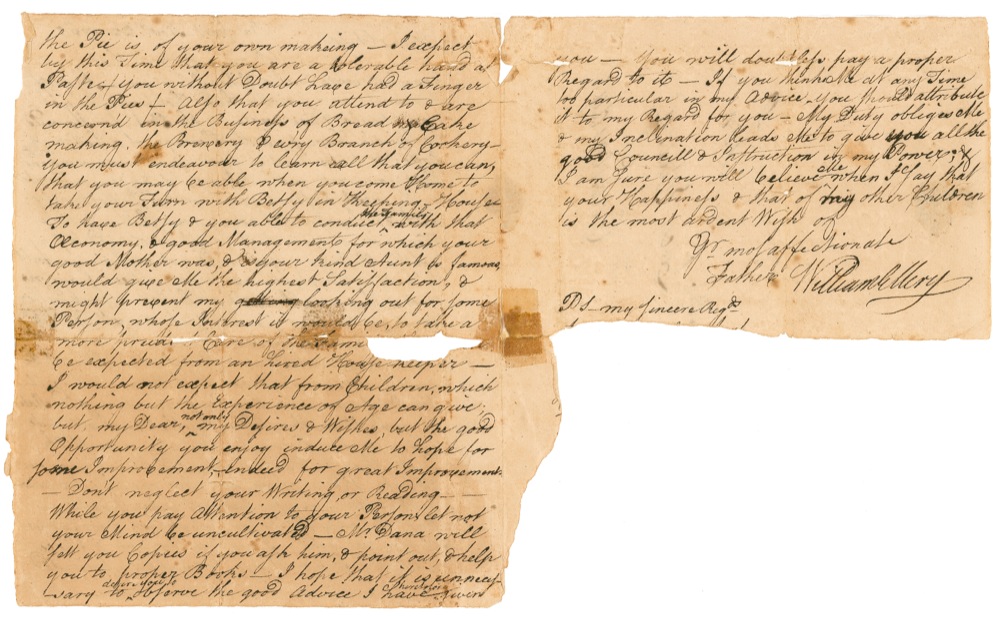 the Pie is of your own makeing — I expect
by this Time that you are a tolerable hand at
Paste & you without Doubt have had a Finger
in the Pies — Also that you attend to & are
concern'd in the Business of Bread & Cake
making, the Brewery & evry Branch of Cookery —
You must endeavour to learn all that you can,
that you may be able when you come Home to
take your Turn with Betsy in Keeping House
To have Betsy & you able to conduct the Family with that
Œconomy, & good Management for which your
good Mother was, & is your kind Aunt is famous,
would give Me the highest Satisfaction, &
might prevent my getting looking out for some
Person, whose Interest it would be, to take a
more Care of the
be expected from an hired House-keeper —
I would not expect that from Children, which
nothing but the Experience of Age can give,
but my Dear, not only my Desires & Wishes, but the good
Opportunity you enjoy induce Me to hope for
some Improvement, — indeed for great Improvement
— Don't neglect your Writing or Reading —
While you pay Attention to your Person, let not
your Mind be uncultivated — Mr. Dana will
sett you Copies if you ask him, & point out, & help
you to proper Books — I hope that it is unneces-
-sary to desire you to observe the good Advice I have heretofore given
you — You will doubtless pay a proper
Regard to it — If you think Me at any Time
too particular in my Advice You should attribute
it to my Regard for you — My Duty obliges Me
& my Inclination leads Me to give you all the
good Councill & Instruction in my Power; &
I am sure you will believe me when I say that
your Happiness & that of my other Children
is the most ardent Wish of
Yr. most affectionate
Father William Ellery
PS — my sincere Regds